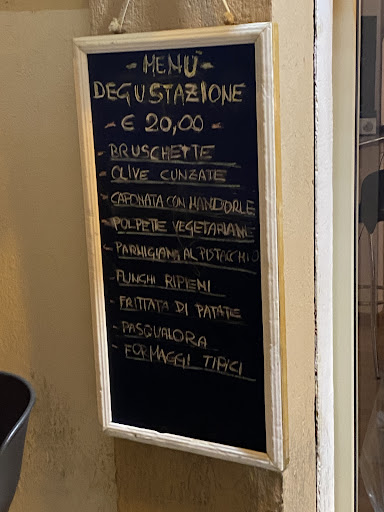 - MENÙ -
DEGUSTAZIONE
- € 20,00 -
- BRUSCHETTE
- OLIVE CUNZATE
- CAPONATA CON MANDORLE
- POLPETE VEGETARIANE
- PARMIGIANA AL PISTACCHIO
- FUNGHI RIPIENI
- FRITTATA DI PATATE
- PASQUALORA
- FORMAGGI TIPICI